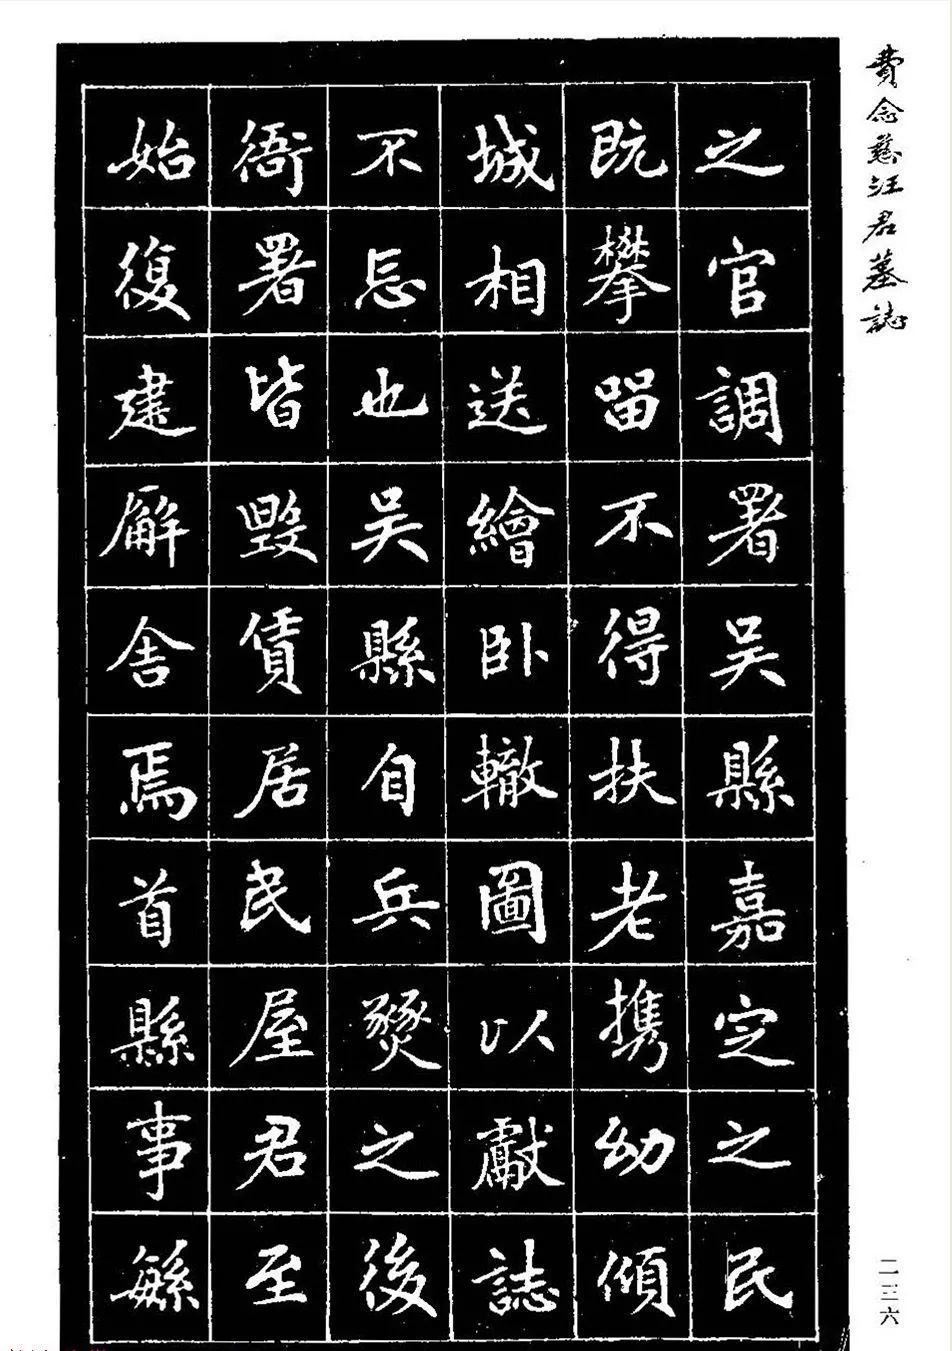 費念慈汪君墓誌
之官調署吳縣嘉定之民
既攀留不得扶老携幼傾
城相送繪卧轍圖以獻誌
不忘也吳縣自兵燹之後
衙署皆毀賃居民屋君至
始復建廨舍焉首縣事繇
二三六